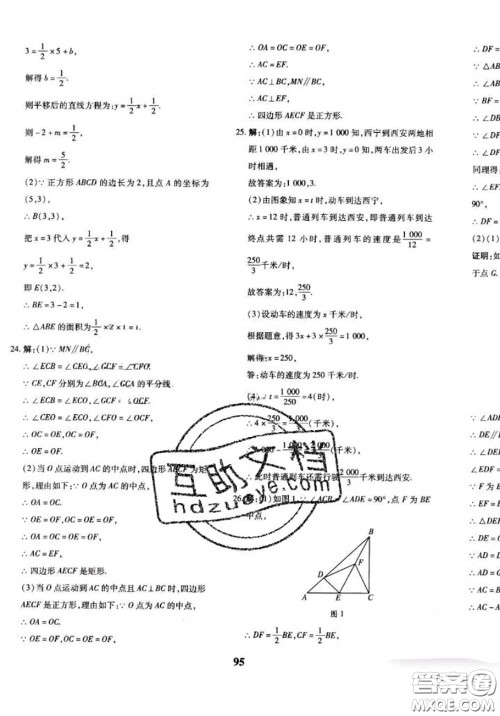 3=1/2×5+b,
解得 b=1/2.
则平移后的直线方程为:y=1/2x+1/2.
则-2+m=1/2,
解得 m=5/2.
(2)∵正方形 ABCD 的边长为2,且点 A 的坐标为
(5,3),
∴B(3,3).
把 x=3 代入 y=1/2x+1/2,得
y=1/2×3+1/2=2,
即 E(3,2).
∴BE=3-2=1,
∴△ABE 的面积为
24.解:(1)∵MN∥BC,
∴∠ECB=∠CEO,∠GCF=∠CFO.
∵CE,CF 分别为∠BCA,∠GCA 的平分线.
∴∠ECB=∠ECO,∠GCF=
∴∠CEO=∠ECO,∠CFO=
∴OC=OE,OC=OF,
∴OE=OF.
(2)当 O 点运动到 AC 的中点时,四边形 AECF 为矩
形,理由如下:∵O 点为 AC 的中点,
∴OA=OC.
∵OE=OF,OC=OE=OF,
∴OA=OC=OE=OF,
∴AC=EF.
∴四边形 AECF 是矩形.
(3)当 O 点运动到 AC 中点且 AC⊥BC 时,四边形
AECF 是正方形,理由如下:∵O 点为 AC 的中点,
∴OA=OC.
∵OE=OF,OC=OE=OF,
∴OA=OC=OE=OF.
∴AC=EF.
∵AC⊥BC,MN∥BC,
∴AC⊥EF,
∴四边形 AECF 是正方形.
25.解:(1)由 x=0 时,y=1 000 知,西宁到西安两地相
距1 000千米,由 x=3 时,y=0 知,两车出发后3小
时相遇,
故答案为:1 000,3.
(2)由图象知 x=t 时,动车到达西宁,
∴x=12 时,普通列车到达西安,即普通列车到达
终点共需12小时,普通列车的速度是1 000/12=
250/3千米/时,
故答案为:12,250/3.
(3)设动车的速度为 x 千米/时,
根据题意,得3x+3×250/3=1 000,
解得:x=250.
答:动车的速度为250千米/时.
(4)∵t=1 000/250=4(时),
∴4×250/3=1 000/3(千米),
∴此时普通列车还需行驶2 000/3千米到达西安.
26.解:(1)如图1,∵∠ACB=∠ADE=90°,点 F 为 BE
中点,
B
F
D
A
E
C
图1
∴DF=1/2BE,CF=1/2BE,
∴DF=
∵△ABC
∴∠ABC
∵BF=D
∴∠DBF
∴∠DFE
同理得:
90°,
∴DF=
(2)(1)
证明:
于点 G.
∵∠ADE
∴DE∥
∴∠DEF
∵F 为
∴EF=
∴△DEF
∴DE=
∵AC=
95
互助文档
hdzuoye.com
答案圈
MXQE.COM